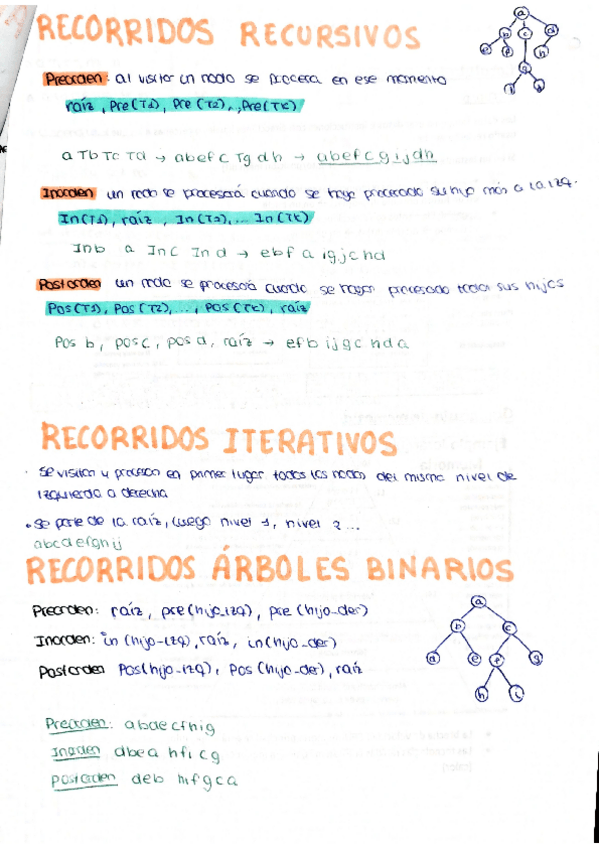 RECORRIDOS RECURSIVOS
Preorden: al visitar un nodo se procesa en ese momento
raíz, Pre(T1), Pre(T2), , Pre(TK)
a Tb Tc Td → abefc Tg dh → abefcgijdh
Inorden un nodo se procesará cuando se haya procesado su hijo más a la izq.
In(T1), raíz, In(T2), ... In(TK)
Inb a Inc Ind → ebf a igjchd
Postorden un nodo se procesará cuando se hayan procesado todos sus hijos
Pos(T1), Pos(T2), ..., Pos(TK), raíz
Pos b, pos c, pos d, raíz → efb ijgc hda
RECORRIDOS ITERATIVOS
· Se visitan y procesan en primer lugar todos los nodos del mismo nivel de
izquierda a derecha
• Se parte de la raíz, luego nivel 1, nivel 2 ...
abcdefghij
RECORRIDOS ÁRBOLES BINARIOS
Preorden: raíz, pre(hijo_izq), pre(hijo_der)
Inorden: in(hijo-izq), raíz, in(hijo-der)
Postorden Pos(hijo-izq), Pos(hijo-der), raíz
a
b c
d e f g
h i
Preorden: abdecfhig
Inorden dbea hficg
Postorden deb hifgca